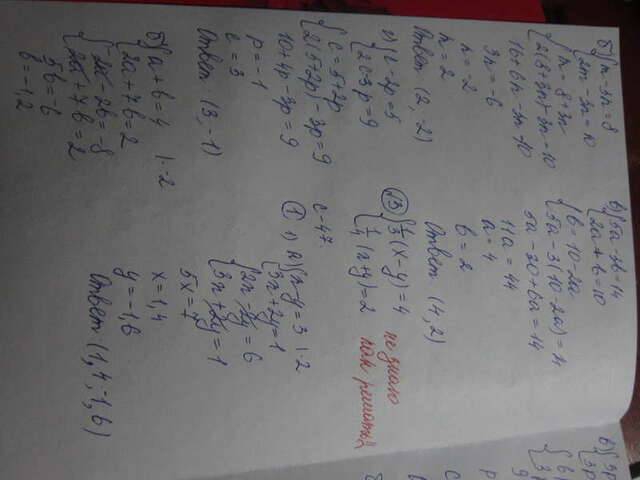 б) { m - 3n = 8
2m - 3n = 10
{ m = 8 + 3n
2(8 + 3n) - 3n = 10
16 + 6n - 3n = 10
3n = -6
n = -2
m = 2
Ответ (2, -2)
г) { c - 2p = 5
2c - 3p = 9
{ c = 5 + 2p
2(5 + 2p) - 3p = 9
10 + 4p - 3p = 9
p = -1
c = 3
Ответ (3, -1)
б) { a + b = 4 | · 2
2a + 7b = 2
{ -2a - 2b = -8
2a + 7b = 2
5b = -6
b = -1,2
в) { 5a - 3b = 14
2a + b = 10
{ b = 10 - 2a
5a - 3(10 - 2a) = 14
5a - 30 + 6a = 14
11a = 44
a = 4
b = 2
Ответ (4, 2)
(13) { 1/3 (x - y) = 4
1/4 (x + y) = 2
не знаю
как решать
С-47.
(1) 1) а) { x - y = 3 | · 2
3x + 2y = 1
{ 2x - 2y = 6
3x + 2y = 1
5x = 7
x = 1,4
y = -1,6
Ответ (1,4; -1,6)